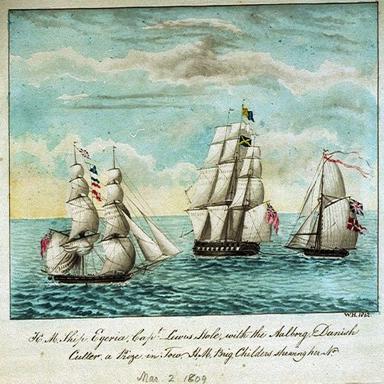 W.H. 1812
H. M. Ship Egeria, Capt. Lewis Hole, with the Aalborg, Danish
Cutter, a Prize in Tow H.M. Brig Childers shewing her No.
Mar. 2. 1809